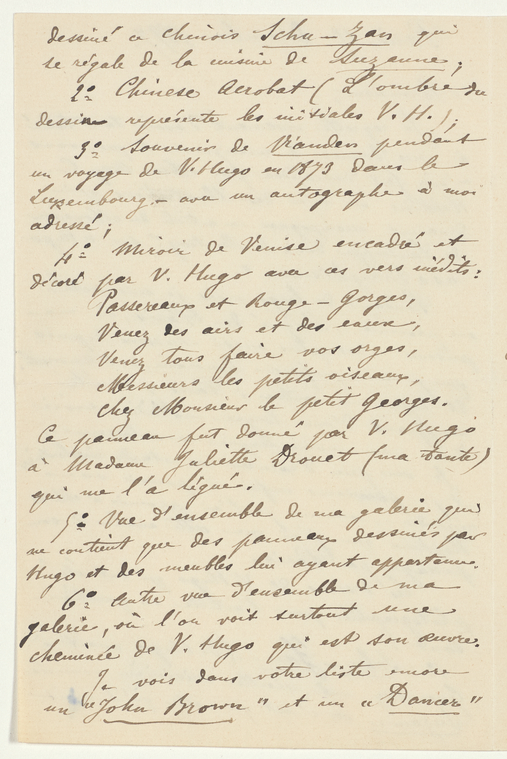 dessiné ce chinois Schu-Zan qui
se régale de la cuisine de Suzanne;
2º Chinese Acrobat (L'ombre du
dessin représente les initiales V. H.);
3º Souvenir de Vianden pendant
un voyage de V. Hugo en 1873 dans le
Luxembourg - avec un autographe à moi
adressé;
4º Miroir de Venise encadré et
décoré par V. Hugo avec ces vers inédits:
Passereaux et Rouge-Gorges,
Venez des airs et des eaux,
Venez tous faire vos orges,
Messieurs les petits oiseaux,
Chez Monsieur le petit Georges.
Ce panneau fut donné par V. Hugo
à Madame Juliette Drouet (ma tante)
qui me l'a légué.
5º Vue d'ensemble de ma galerie qui
ne contient que des panneaux dessinés par
Hugo et des meubles lui ayant appartenu.
6º Autre vue d'ensemble de ma
galerie, où l'on voit surtout une
cheminée de V. Hugo qui est son œuvre.
Je vois dans votre liste encore
un "John Brown" et un "Dancer"